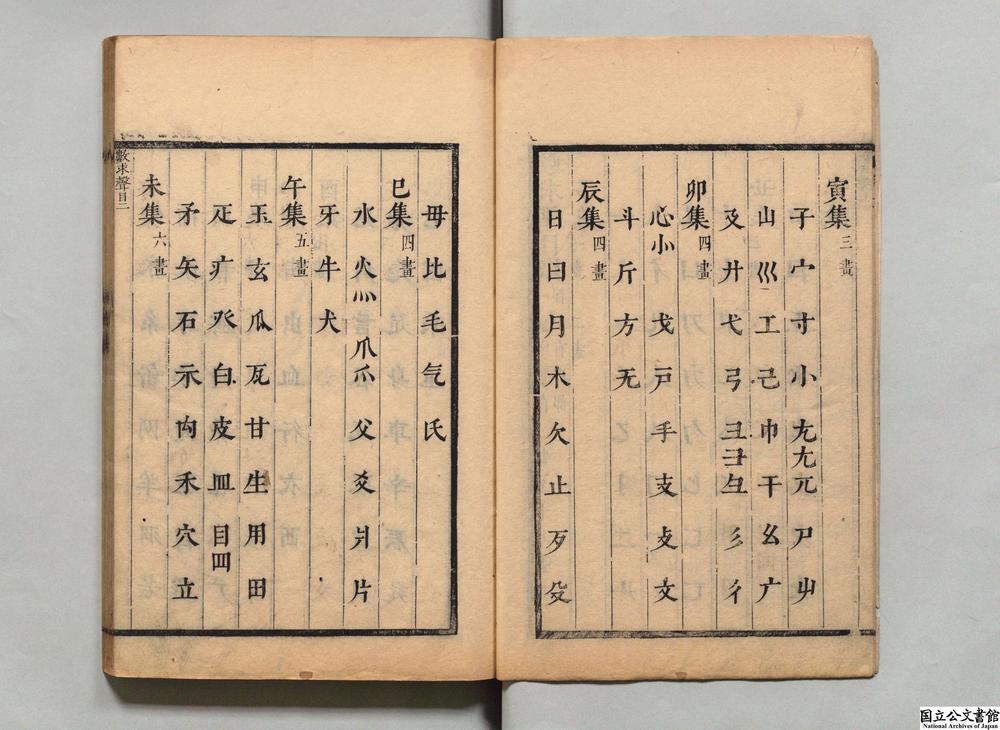 寅集三畫
子宀寸小尢尣兀尸屮
山巛工己巾干幺广
夊廾弋弓彐彑彡彳
卯集四畫
心㣺戈戶手支攴文
斗斤方无
辰集四畫
日曰月木欠止歹殳
毋比毛气氏
巳集四畫
水火灬爪爫父爻爿片
牙牛犬
午集五畫
玉玄瓜瓦甘生用田
疋疒癶白皮皿目罒
未集六畫
矛矢石示禸禾穴立
數求聲目二
国立公文書館
National Archives of Japan